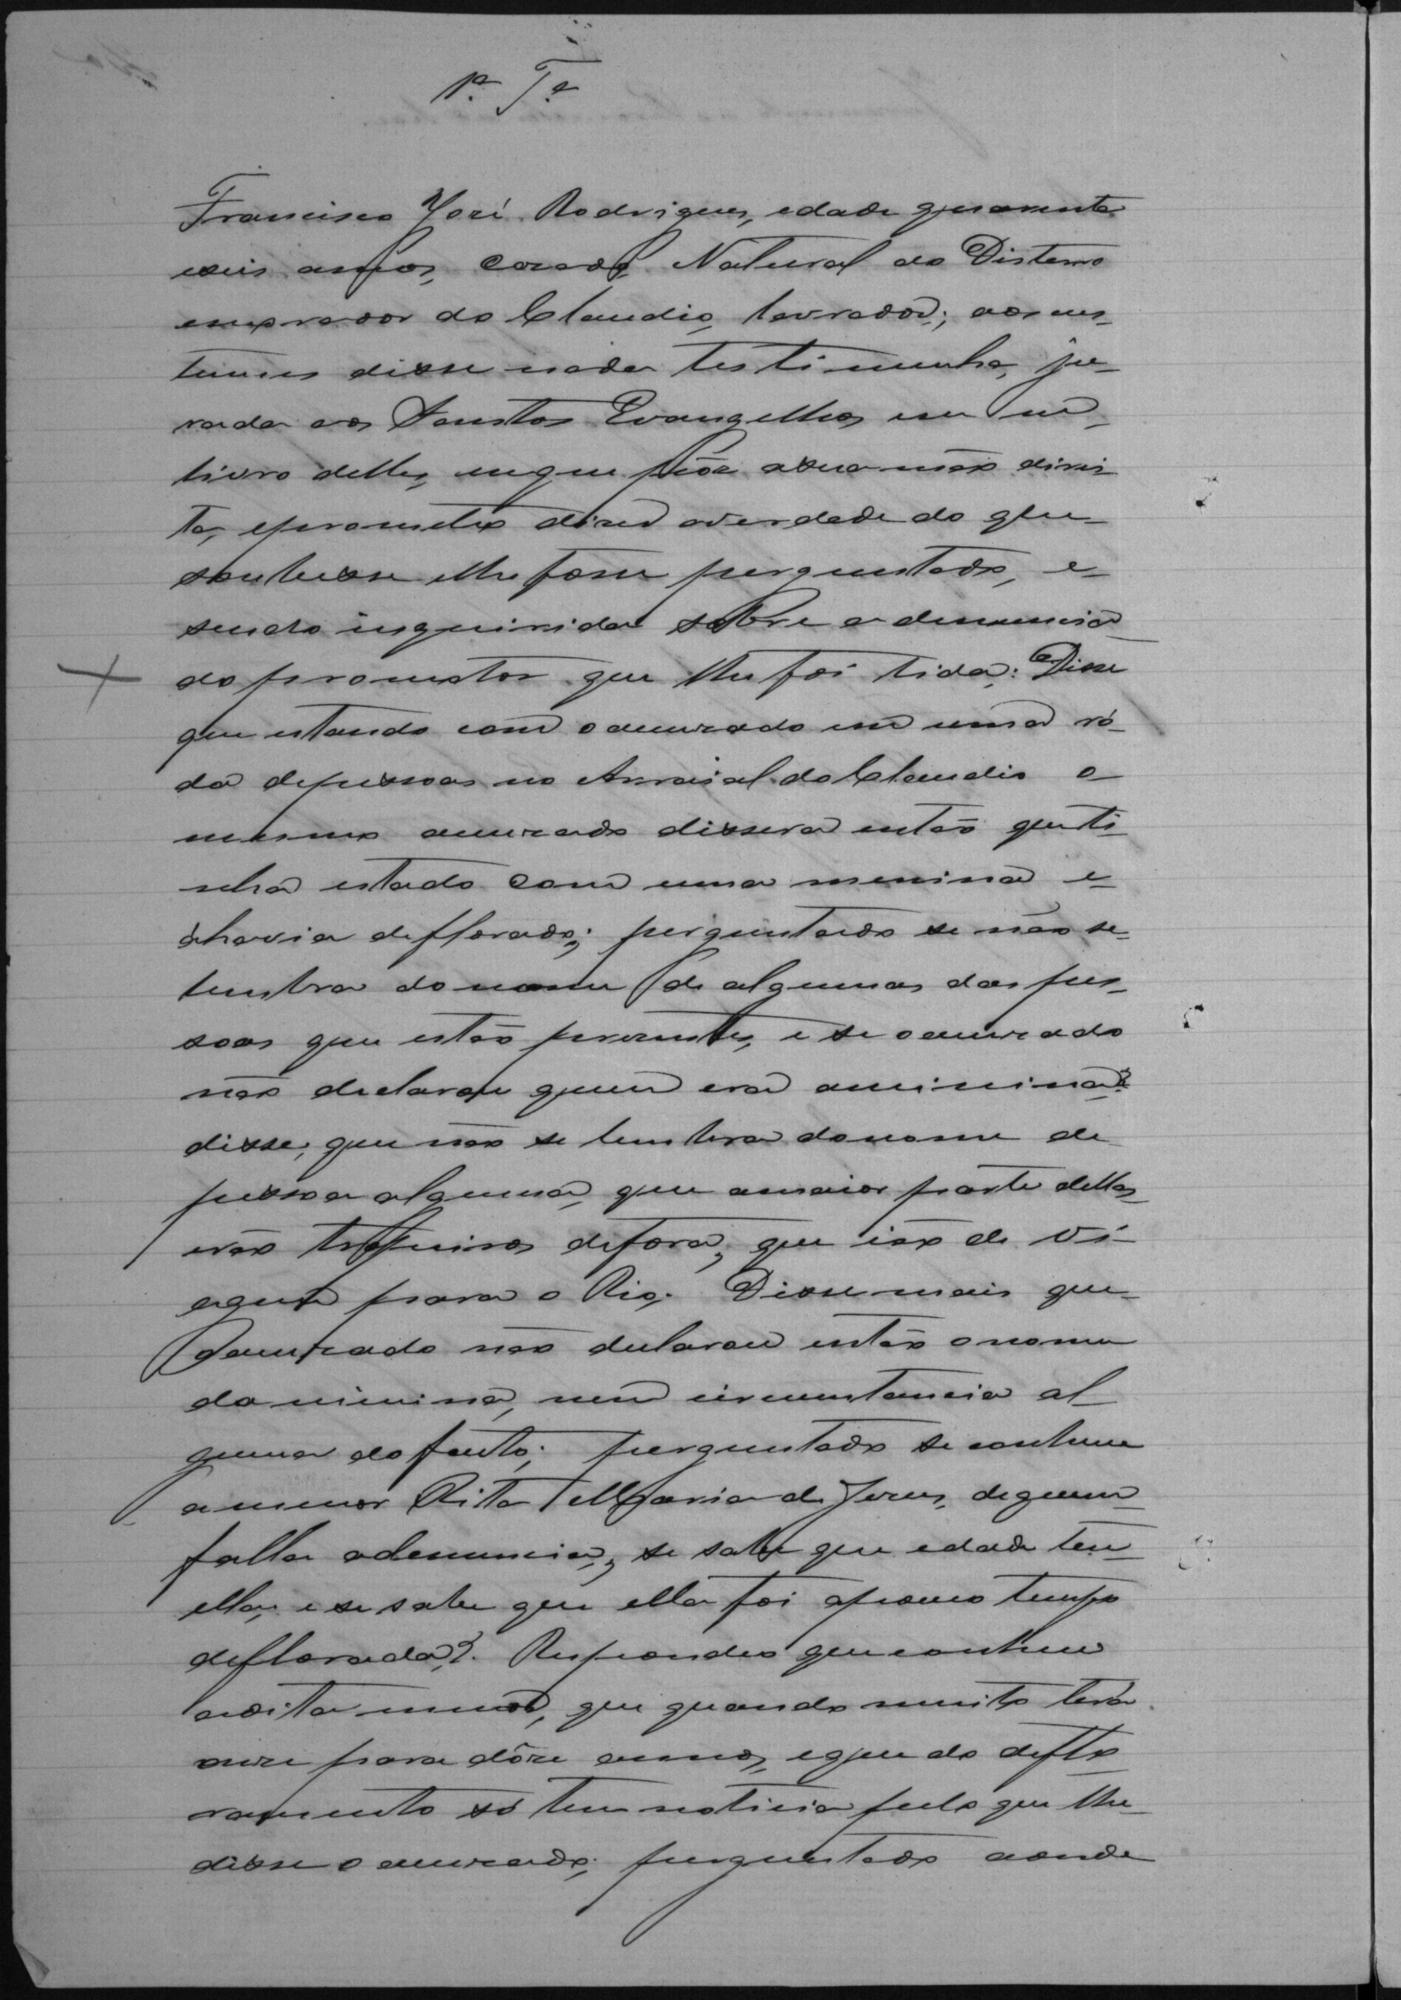 1ª Tª
Francisco José Rodrigues, edade quarenta
eseis annos, casado, Natural do Disterro
emorador do Claudio, lavrador; aos cus-
tumes disse nada testimunha, ju-
rada aos Santos Evangelhos em um
livro delles, emque pôz asua mão direi
ta, eprometeo dizer averdade do que
soubesse elhe fosse perguntado, e
sendo inquirida sobre a denuncia
do promotor que lhe foi lida: Disse
que estando com oaccusado em uma ró-
da depessoas no Arraial do Claudio o
mesmo accusado dissera então queti-
nha estado com uma menina e
ahavia deflorado; perguntado se não se
lembra do nome de algumas das pes-
soas que estão prezentes, e se oaccusado
não declarou quem era aminina?
disse, que não se lembra donome de
pessoa alguma, que amaior parte dellas
erão tropeiros defora, que ião de vi-
agem para o Rio. Disse mais que
oaccusado não declarou então onome
da minina, nem circumstancia al-
guma do facto; perguntado se conhece
a menor Rita Maria de Jesus, dequem
falla adenuncia, se sabe que edade tem
ella, e se sabe que ella foi apouco tempo
deflorada?. Respondeo que conhece
adita menor, que quando muito terá
onze para dôze annos, eque do deflo-
ramento só tem noticia pelo que lhe
disse o accusado; perguntado aonde